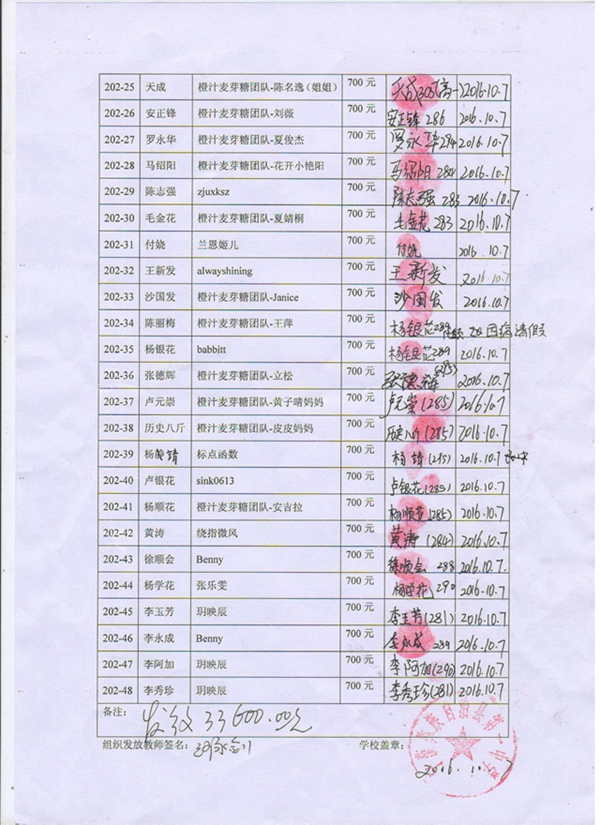 202-25 天成 橙汁麦芽糖团队-陈名逸（姐姐） 700 元 天成303(高一) 2016.10.7
202-26 安正锋 橙汁麦芽糖团队-刘薇 700 元 安正锋 286 2016.10.7
202-27 罗永华 橙汁麦芽糖团队-夏俊杰 700 元 罗永华 284 2016.10.7
202-28 马绍阳 橙汁麦芽糖团队-花开小艳阳 700 元 马绍阳 284 2016.10.7
202-29 陈志强 zjuxksz 700 元 陈志强 283 2016.10.7
202-30 毛金花 橙汁麦芽糖团队-夏婧桐 700 元 毛金花 283 2016.10.7
202-31 付娆 兰恩姬儿 700 元 付娆 2016.10.7
202-32 王新发 alwayshining 700 元 王新发 2016.10.7
202-33 沙国发 橙汁麦芽糖团队-Janice 700 元 沙国发 2016.10.7
202-34 陈丽梅 橙汁麦芽糖团队-王萍 700 元 杨银花289 因病请假
202-35 杨银花 babbitt 700 元 杨银花289 2016.10.7
202-36 张德辉 橙汁麦芽糖团队-立松 700 元 张德辉(285) 2016.10.7
202-37 卢元崇 橙汁麦芽糖团队-黄子晴妈妈 700 元 卢元崇(285) 2016.10.7
202-38 历史八斤 橙汁麦芽糖团队-皮皮妈妈 700 元 历史八斤(285) 2016.10.7
202-39 杨 靖 标点函数 700 元 杨靖(285) 2016.10.7
202-40 卢银花 sink0613 700 元 卢银花(285) 2016.10.7
202-41 杨顺花 橙汁麦芽糖团队-安吉拉 700 元 杨顺花(285) 2016.10.7
202-42 黄涛 绕指微风 700 元 黄涛(284) 2016.10.7
202-43 徐顺会 Benny 700 元 徐顺会 288 2016.10.7
202-44 杨学花 张乐雯 700 元 杨学花 290 2016.10.7
202-45 李玉芳 玥映辰 700 元 李玉芳(281) 2016.10.7
202-46 李永成 Benny 700 元 李永成 289 2016.10.7
202-47 李阿加 玥映辰 700 元 李阿加(290) 2016.10.7
202-48 李秀珍 玥映辰 700 元 李秀珍(281) 2016.10.7
备注： 发放 33600.00元
组织发放教师签名： 学校盖章：
2016.10.7